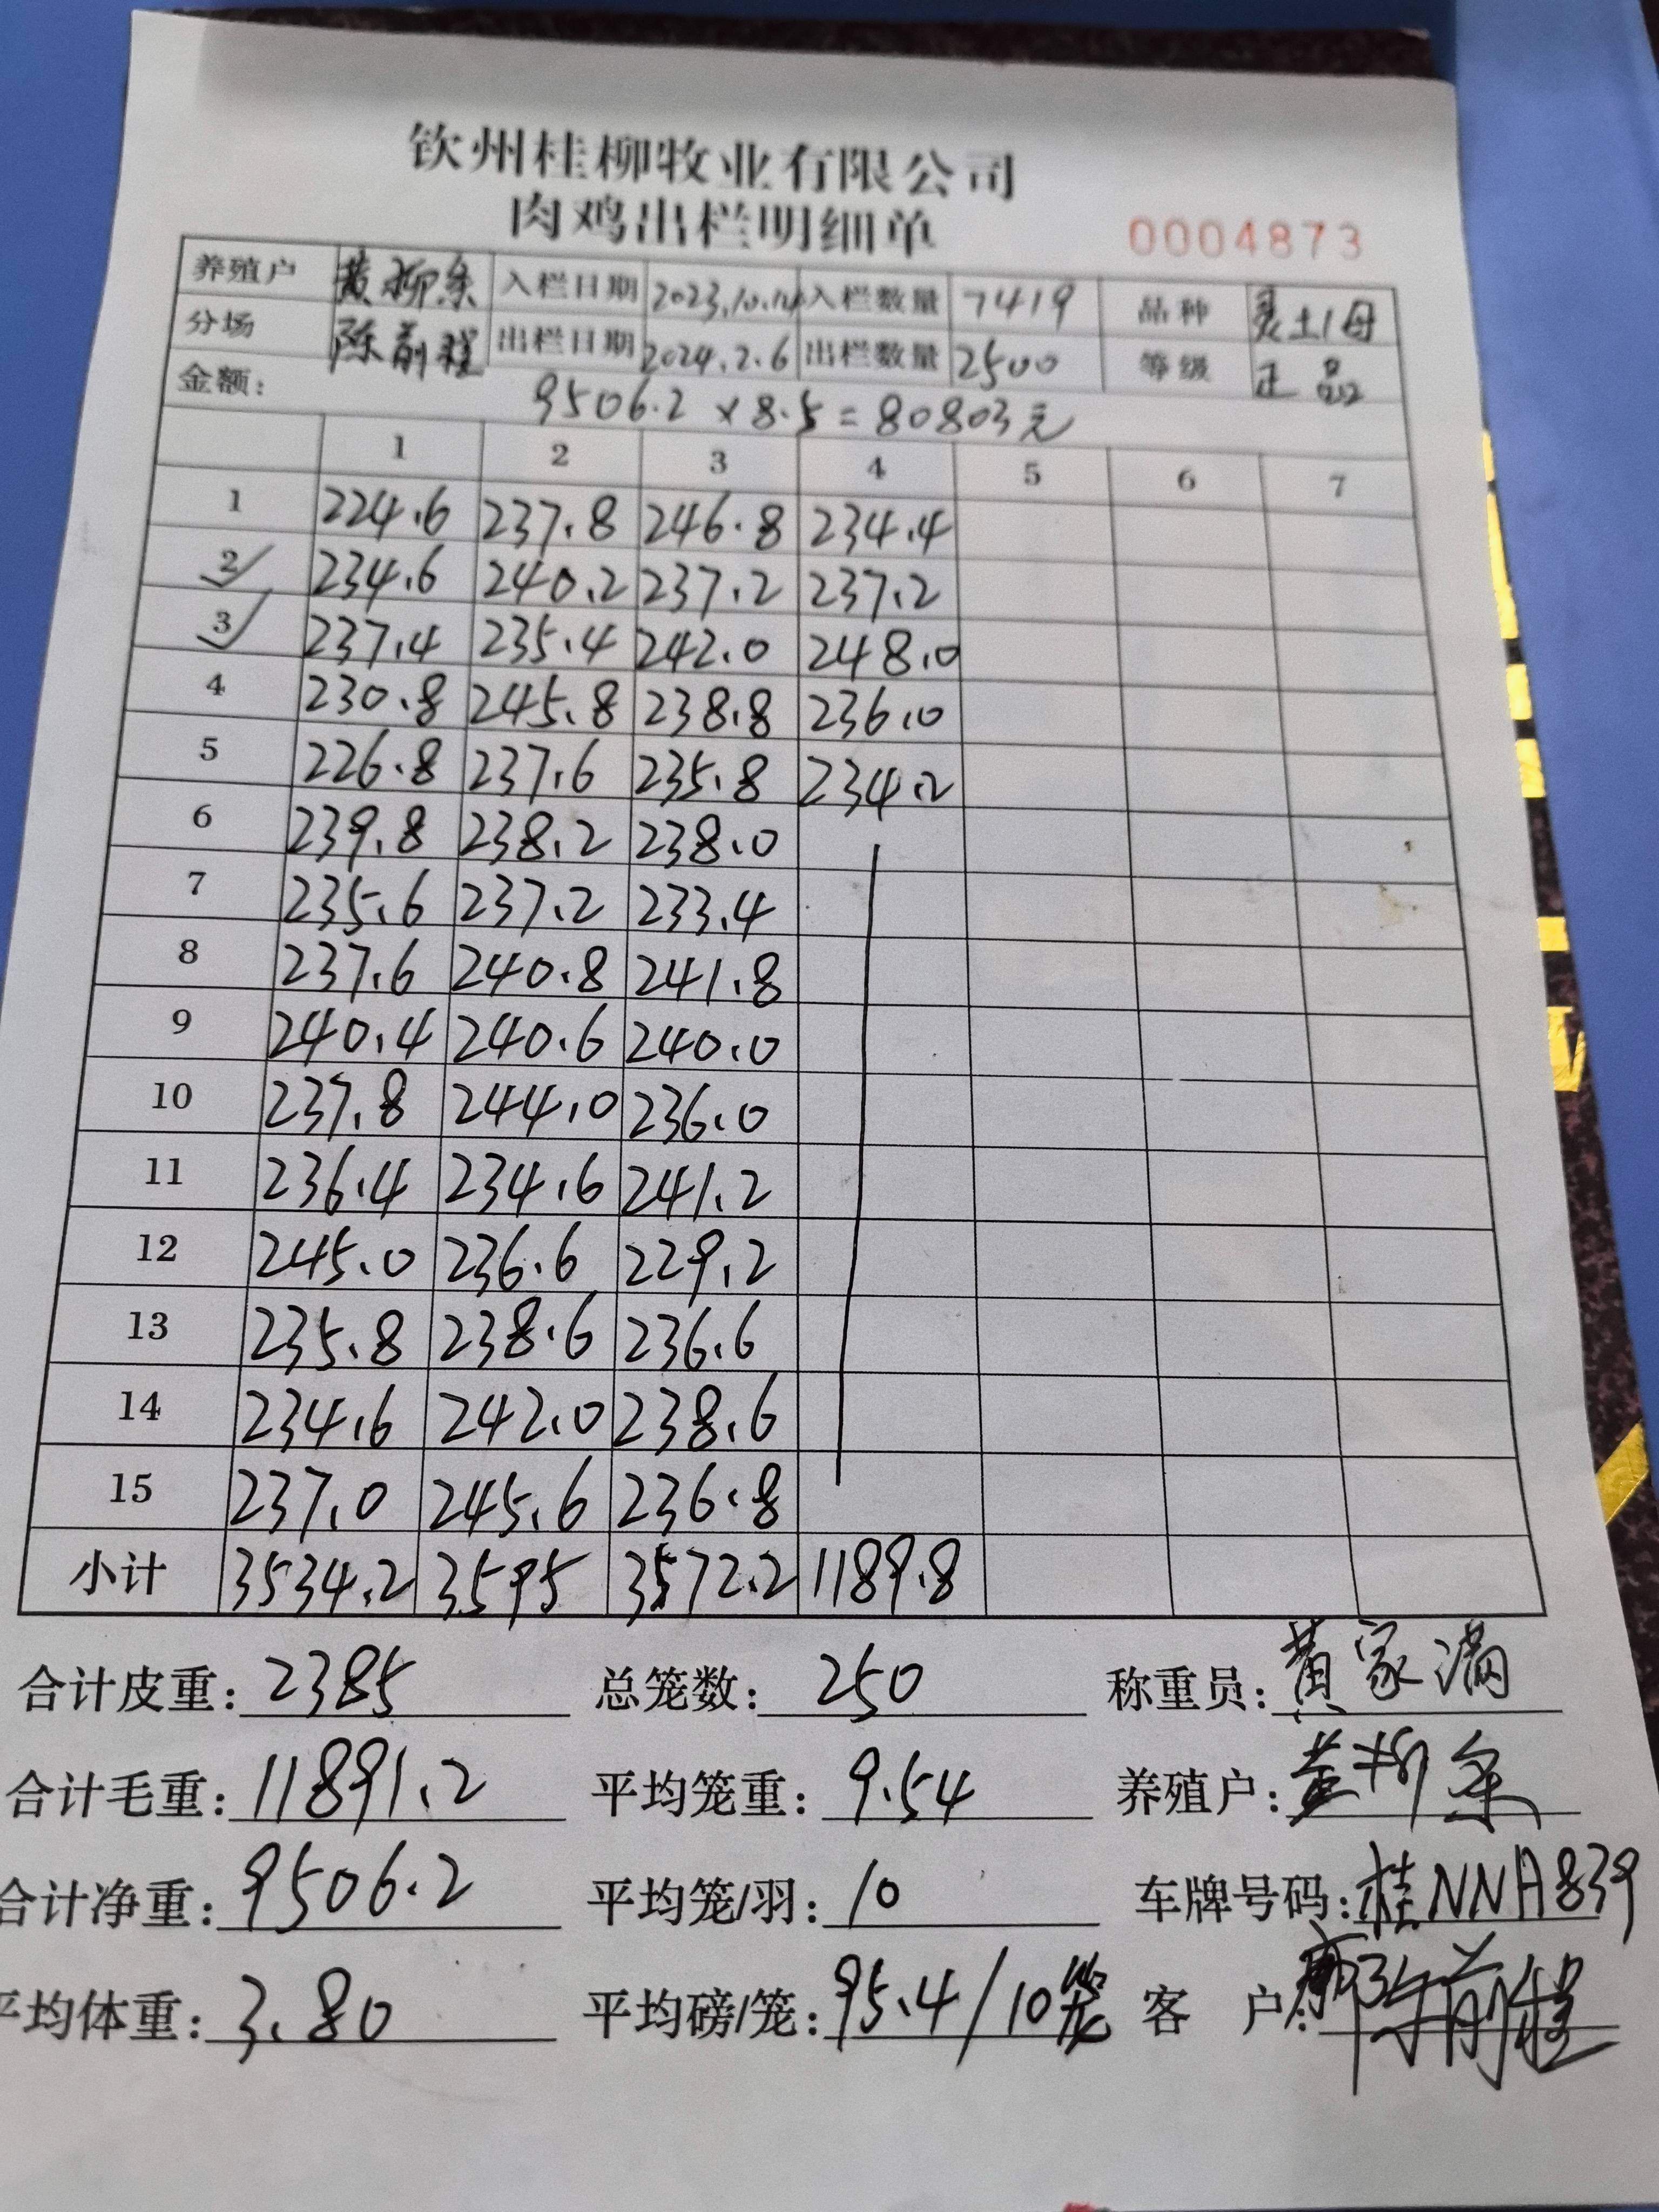 钦州桂柳牧业有限公司
肉鸡出栏明细单
0004873
养殖户 黄柳条 入栏日期 2023.10.14 入栏数量 7419 品种 灵土1母
分场 陈前程 出栏日期 2024.2.6 出栏数量 2500 等级 正品
金额: 9506.2 × 8.5 = 80803元
1 2 3 4 5 6 7
1 224.6 237.8 246.8 234.4
2 234.6 240.2 237.2 237.2
3 237.4 235.4 242.0 248.0
4 230.8 245.8 238.8 236.0
5 226.8 237.6 235.8 234.2
6 239.8 238.2 238.0
7 235.6 237.2 233.4
8 237.6 240.8 241.8
9 240.4 240.6 240.0
10 237.8 244.0 236.0
11 236.4 234.6 241.2
12 245.0 236.6 229.2
13 235.8 238.6 236.6
14 234.6 242.0 238.6
15 237.0 245.6 236.8
小计 3534.2 3595 3572.2 1189.8
合计皮重: 2385 总笼数: 250 称重员: 黄家满
合计毛重: 11891.2 平均笼重: 9.54 养殖户: 黄柳条
合计净重: 9506.2 平均笼/羽: 10 车牌号码: 桂NNA839
平均体重: 3.80 平均磅/笼: 95.4/10笼 客户: 陈前程